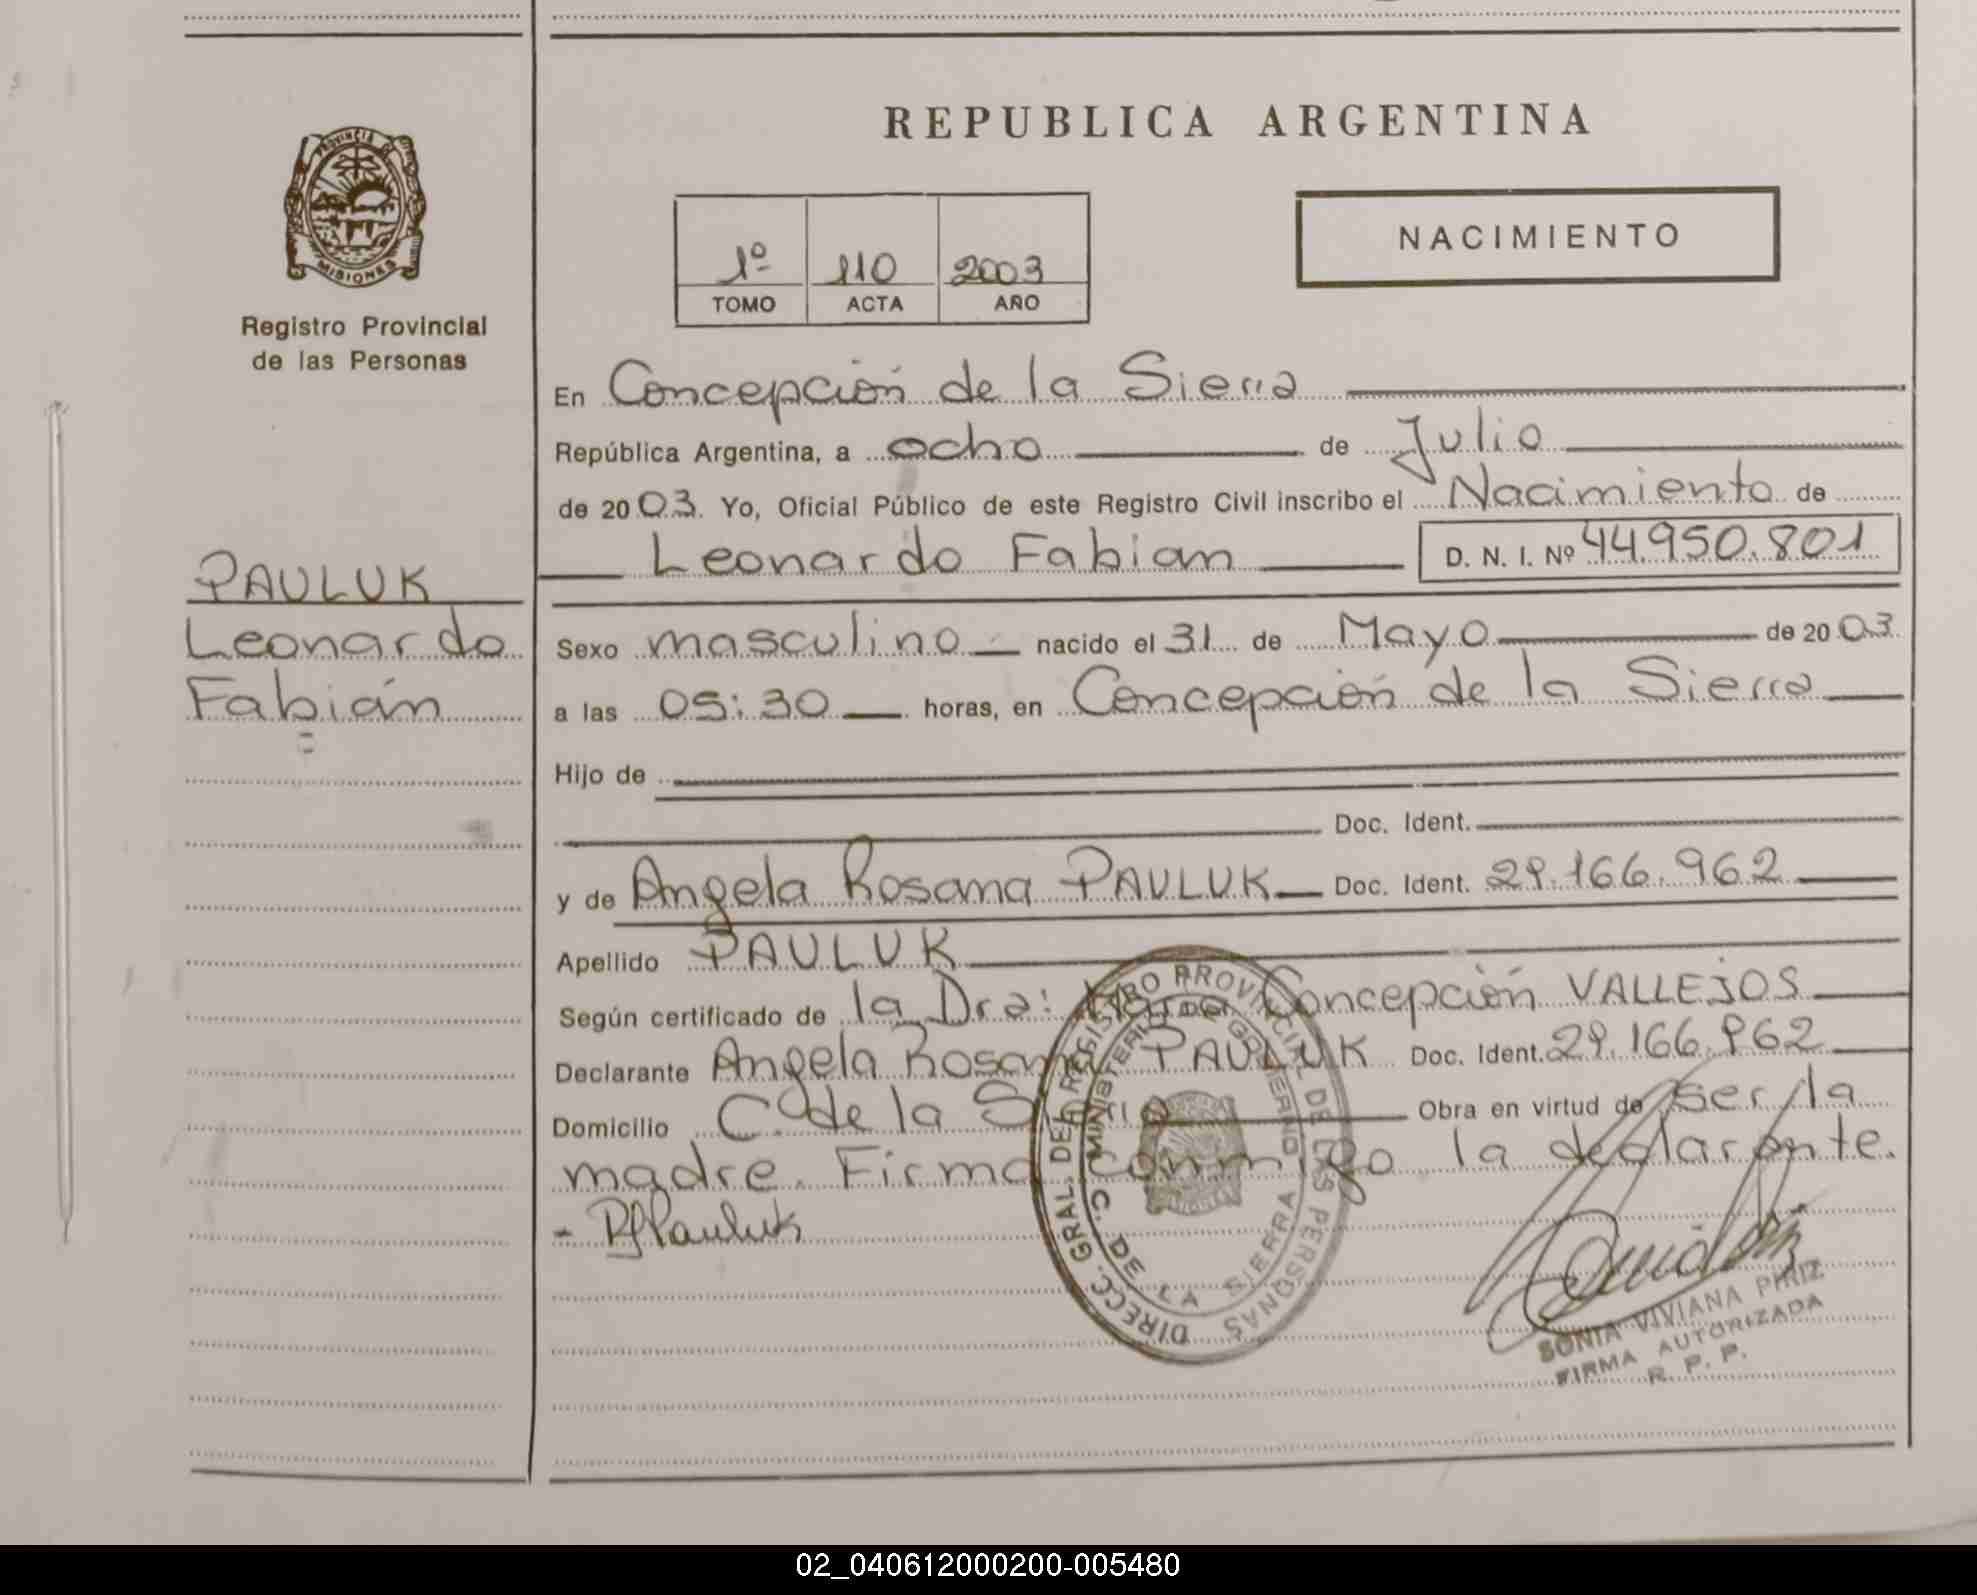 PROVINCIA DE
MISIONES
Registro Provincial
de las Personas
PAULUK
Leonardo
Fabián
REPUBLICA ARGENTINA
1º 110 2003
TOMO ACTA AÑO
NACIMIENTO
En Concepción de la Sierra
República Argentina, a ocho de Julio
de 2003. Yo, Oficial Público de este Registro Civil inscribo el Nacimiento de
Leonardo Fabian D. N. I. Nº 44.950.801
Sexo masculino nacido el 31 de Mayo de 2003
a las 05:30 horas, en Concepción de la Sierra
Hijo de
Doc. Ident.
y de Angela Rosana PAULUK Doc. Ident. 29.166.962
Apellido PAULUK
Según certificado de la Dra: Concepción VALLEJOS
Declarante Angela Rosana PAULUK Doc. Ident. 29.166.962
Domicilio C. de la Sierra Obra en virtud de ser la
madre. Firma conmigo la declarante.
- Pauluk
DIRECC. GRAL. DEL REGISTRO PROVINCIAL DE LAS PERSONAS
MINISTERIO DE GOBIERNO
C. DE LA SIERRA
SONIA VIVIANA PIRIZ
FIRMA AUTORIZADA
R. P. P.
02_040612000200-005480